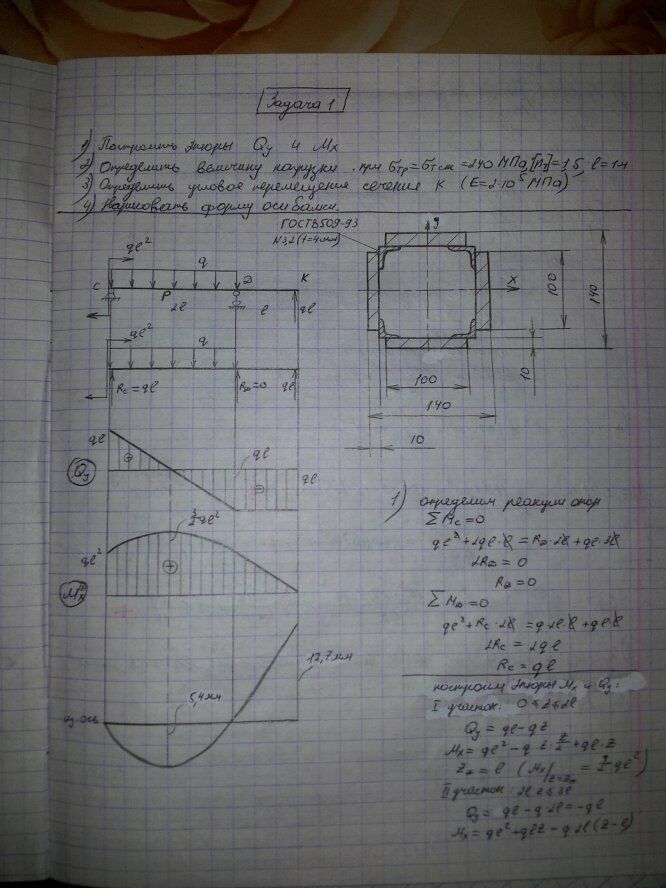 Задача 1
1) Построить эпюры Qy и Mx
2) Определить величину нагрузки при σтр=σтсж =240 МПа, [nт]=1,5, l=1м
3) Определить угловое перемещение сечения K (E=2·10⁵ МПа)
4) Нарисовать форму оси балки.
ГОСТ 8509-93
N3,2 (t=4мм)
y
x
100
140
10
100
140
10
ql²
q
C
P
D
K
2l
l
ql
ql²
q
Rc=ql
R𝒟=0
ql
ql
Qy
ql
ql
3/2 ql²
ql²
Mx
12,7мм
5,4мм
1) определим реакции опор
ΣMc=0
ql²+2ql·l = R𝒟·2l+ql·3l
2R𝒟 = 0
R𝒟 = 0
ΣM𝒟=0
ql²+Rc·2l = q·2l·l+ql·l
2Rc = 2ql
Rc = ql
построим эпюры Mx и Qy:
I участок: 0≤z≤2l
Qy = ql-qz
Mx = ql²-q·z·z/2+ql·z
zm = l (Mx|z=zm = 3/2 ql²)
II участок: 2l≤z≤3l
Qy = ql-q·2l=-ql
Mx = ql²+qlz-q·2l(z-l)